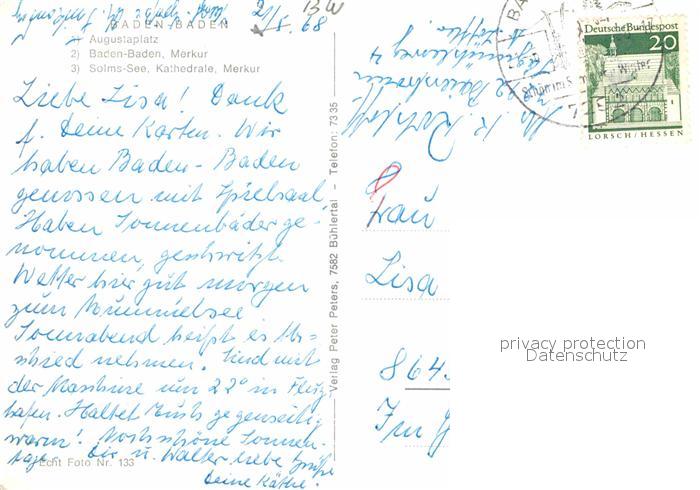 2/8.68
BW
BADEN-BADEN
1) Augustaplatz
2) Baden-Baden, Merkur
3) Solms-See, Kathedrale, Merkur
Liebe Lisa! Dank
f. Deine Karten. Wir
haben Baden-Baden
genossen mit Spielsaal,
Haben Sonnenbäder ge-
nommen, geschwitzt
Wetter hier gut morgen
zum Mummelsee
Sonnabend heißt es Ab=
schied nehmen. Sind mit
der Maschine um 22° in Flug
hafen. Haltet Euch gegenseitig
warm! Noch schöne Sonnen-
tage. Dir u. Walter liebe Grüße
Deine Käthe.
Echt Foto Nr. 133
Verlag Peter Peters, 7582 Bühlertal - Telefon: 7335
Deutsche Bundespost
20
LORSCH/HESSEN
Frau
Lisa
864
privacy protection
Datenschutz